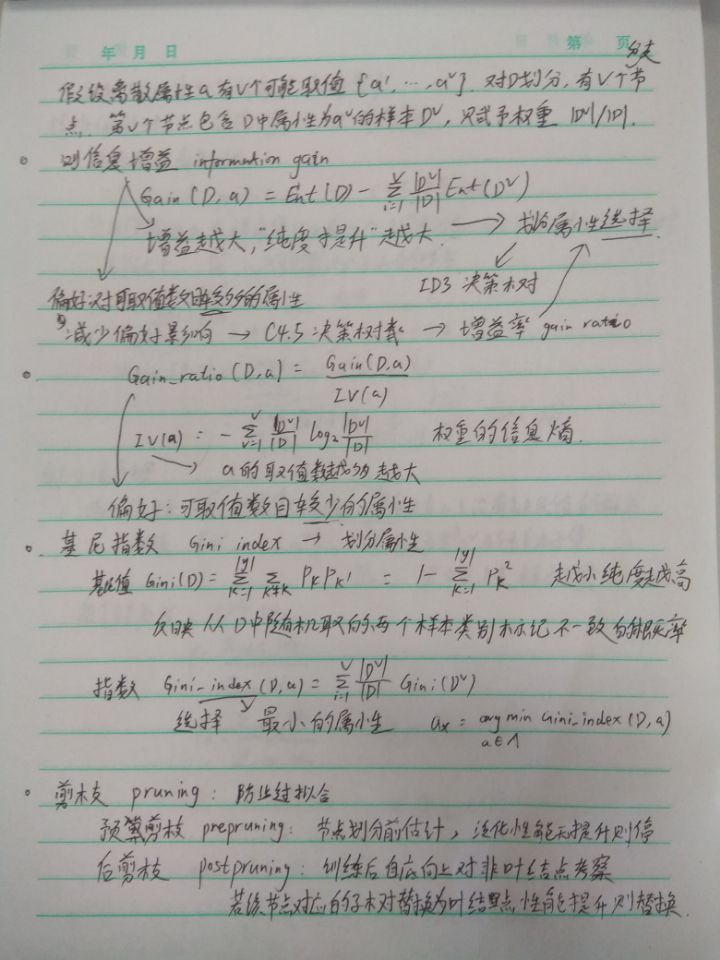 年 月 日 第 页
分支
假设离散属性a有V个可能取值 {a¹, …, aᵛ}. 对D划分, 有V个节
点. 第v个节点包含D中属性为aᵛ的样本Dᵛ, 赋予权重 |Dᵛ|/|D|.
则信息增益 information gain
Gain(D,a) = Ent(D) - Σ_{i=1}^{V} |Dᵛ|/|D| Ent(Dᵛ)
增益越大, "纯度提升"越大. → 划分属性选择
ID3 决策树
偏好对可取值数目较多的属性
减少偏好影响 → C4.5 决策树 → 增益率 gain ratio
Gain_ratio(D,a) = Gain(D,a) / IV(a)
IV(a) = - Σ_{v=1}^{V} |Dᵛ|/|D| log₂ |Dᵛ|/|D| 权重的信息熵.
→ a的取值数越多越大
偏好: 可取值数目较少的属性
基尼指数 Gini index → 划分属性
基尼值 Gini(D) = Σ_{k=1}^{|y|} Σ_{k'≠k} P_k P_k' = 1 - Σ_{k=1}^{|y|} P_k² 越小纯度越高
反映从D中随机取的两个样本类别标记不一致的概率
指数 Gini_index(D,a) = Σ_{i=1}^{V} |Dᵛ|/|D| Gini(Dᵛ)
选择 最小的属性 a* = arg min_{a∈A} Gini_index(D,a)
剪枝 pruning: 防止过拟合
预剪枝 prepruning: 节点划分前估计, 泛化性能无提升则停
后剪枝 postpruning: 训练后自底向上对非叶结点考察
若该节点对应的子树替换为叶结点性能提升则替换.